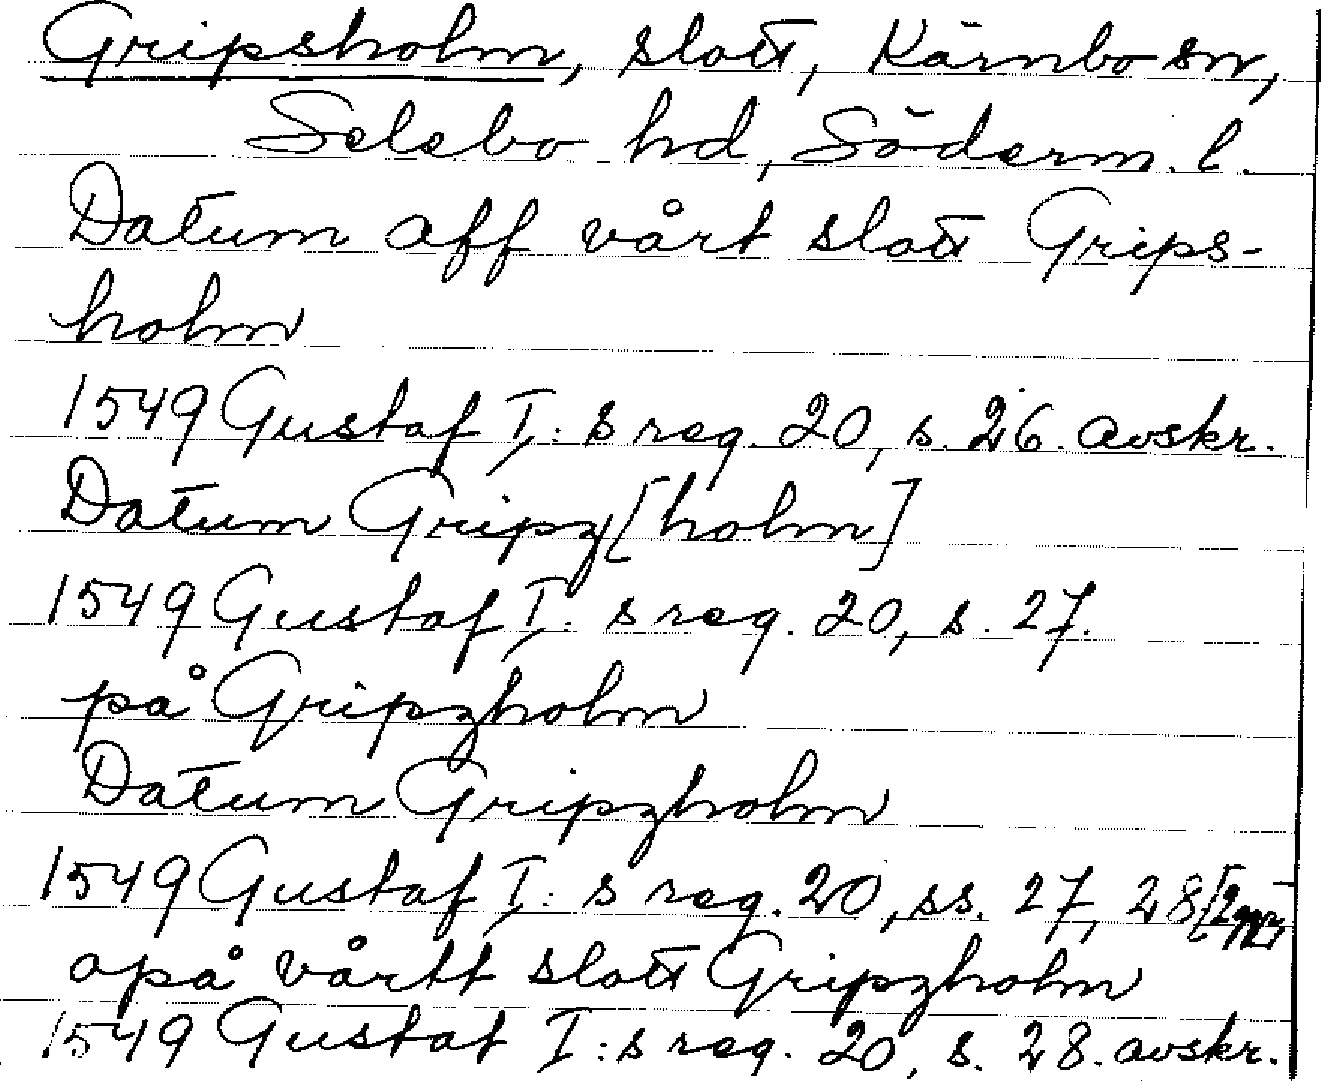 Gripsholm, slott, Kärnbo sn,
Selebo hd, Söderm. l.
Datum aff vårt slott Grips-
holm
1549 Gustaf I: s reg. 20, s. 26. avskr.
Datum Gripz[holm]
1549 Gustaf I: s reg. 20, s. 27.
på Gripzholm
Datum Gripzholm
1549 Gustaf I: s reg. 20, ss. 27, 28[2ggr]
opå vårtt slott Gripzholm
1549 Gustaf I: s reg. 20, s. 28. avskr.